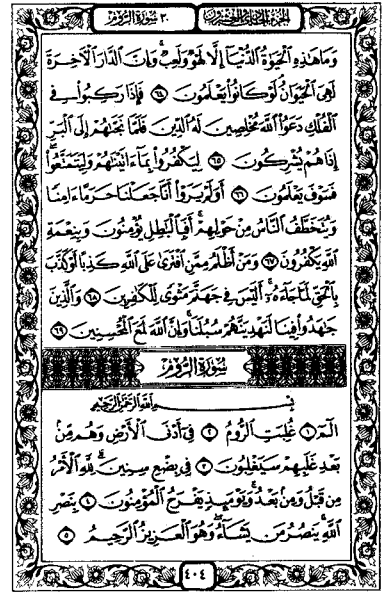 الجزء الحادي والعشرون
٣٠ سورة الروم
وَمَا هَٰذِهِ الْحَيَوٰةُ الدُّنْيَا إِلَّا لَهْوٌ وَلَعِبٌ ۚ وَإِنَّ الدَّارَ الْآخِرَةَ
لَهِيَ الْحَيَوَانُ ۚ لَوْ كَانُوا يَعْلَمُونَ ٦٤ فَإِذَا رَكِبُوا فِي
الْفُلْكِ دَعَوُا اللَّهَ مُخْلِصِينَ لَهُ الدِّينَ فَلَمَّا نَجَّىٰهُمْ إِلَى الْبَرِّ
إِذَا هُمْ يُشْرِكُونَ ٦٥ لِيَكْفُرُوا بِمَا ءَاتَيْنَٰهُمْ وَلِيَتَمَتَّعُوا ۖ
فَسَوْفَ يَعْلَمُونَ ٦٦ أَوَلَمْ يَرَوْا أَنَّا جَعَلْنَا حَرَمًا ءَامِنًا
وَيُتَخَطَّفُ النَّاسُ مِنْ حَوْلِهِمْ ۚ أَفَبِالْبَٰطِلِ يُؤْمِنُونَ وَبِنِعْمَةِ
اللَّهِ يَكْفُرُونَ ٦٧ وَمَنْ أَظْلَمُ مِمَّنِ افْتَرَىٰ عَلَى اللَّهِ كَذِبًا أَوْ كَذَّبَ
بِالْحَقِّ لَمَّا جَاءَهُ ۚ أَلَيْسَ فِي جَهَنَّمَ مَثْوًى لِلْكَٰفِرِينَ ٦٨ وَالَّذِينَ
جَٰهَدُوا فِينَا لَنَهْدِيَنَّهُمْ سُبُلَنَا ۚ وَإِنَّ اللَّهَ لَمَعَ الْمُحْسِنِينَ ٦٩
سُورَةُ الرُّومِ
بِسْمِ اللَّهِ الرَّحْمَٰنِ الرَّحِيمِ
الٓمٓ ١ غُلِبَتِ الرُّومُ ٢ فِي أَدْنَى الْأَرْضِ وَهُم مِّنْ
بَعْدِ غَلَبِهِمْ سَيَغْلِبُونَ ٣ فِي بِضْعِ سِنِينَ ۗ لِلَّهِ الْأَمْرُ
مِن قَبْلُ وَمِنْ بَعْدُ ۚ وَيَوْمَئِذٍ يَفْرَحُ الْمُؤْمِنُونَ ٤ بِنَصْرِ
اللَّهِ ۚ يَنصُرُ مَن يَشَاءُ ۖ وَهُوَ الْعَزِيزُ الرَّحِيمُ ٥
٤٠٤